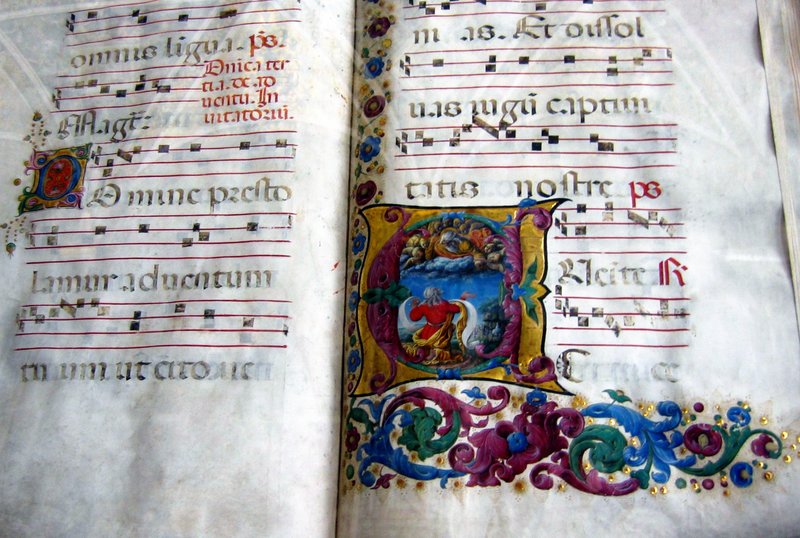 omnis ligua. ps.
Dnica ter
tia de ad
uentu. In
uitatoriu.
Magt.
DOmine presto
lamur aduentum
tuum ut cito ueni
as. Et dissol
uas iugu captiui
tatis nostre ps
Uenite R